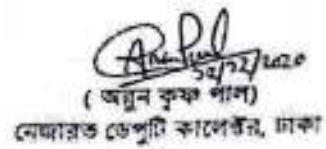 ১০/১২/২০২০
( অরুন কৃষ্ণ পাল)
নেজারত ডেপুটি কালেক্টর, ঢাকা